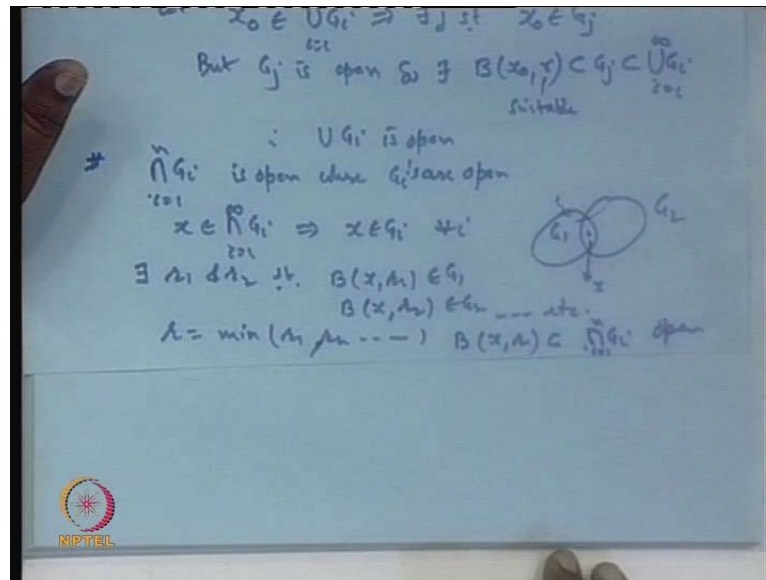 x₀ ∈ ∪Gᵢ ⇒ ∃ j st x₀ ∈ Gⱼ
i=1
But Gⱼ is open so ∃ B(x₀, r) ⊂ Gⱼ ⊂ ∞∪Gᵢ i=1
suitable
∴ ∪Gᵢ is open
# n∩Gᵢ i=1 is open where Gᵢ's are open
x ∈ n∩Gᵢ i=1 ⇒ x ∈ Gᵢ ∀i
G₁ G₂
x
∃ r₁ & r₂ st. B(x, r₁) ∈ G₁
B(x, r₂) ∈ G₂ ---- etc.
r = min(r₁, r₂ ----) B(x, r) ⊂ n∩Gᵢ i=1 open
NPTEL